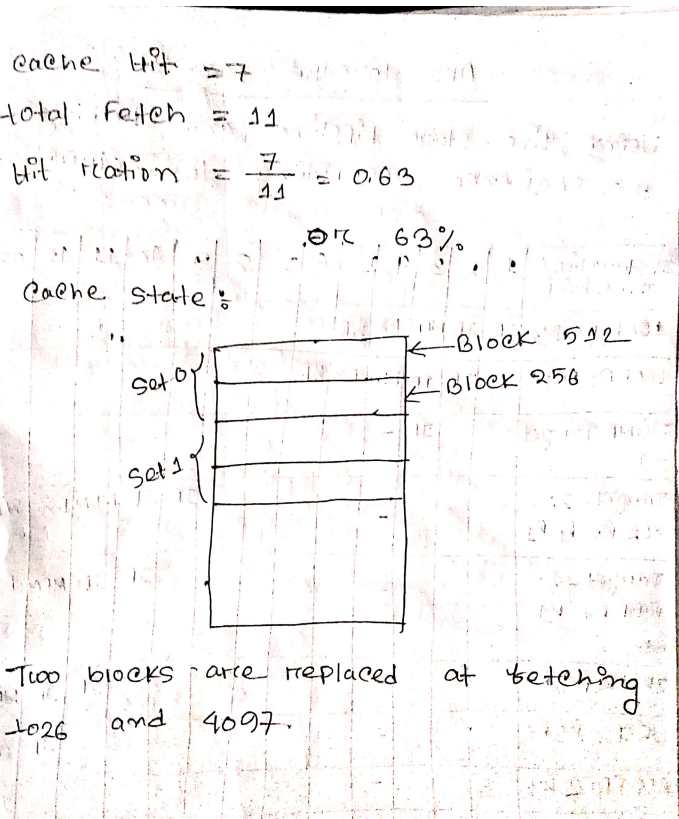 Cache Hit = 7
total Fetch = 11
Hit ration = 7/11 = 0.63
.or 63%
Cache State:
Set 0
Block 512
Block 256
Set 1
Two blocks are replaced at fetching
1026 and 4097.